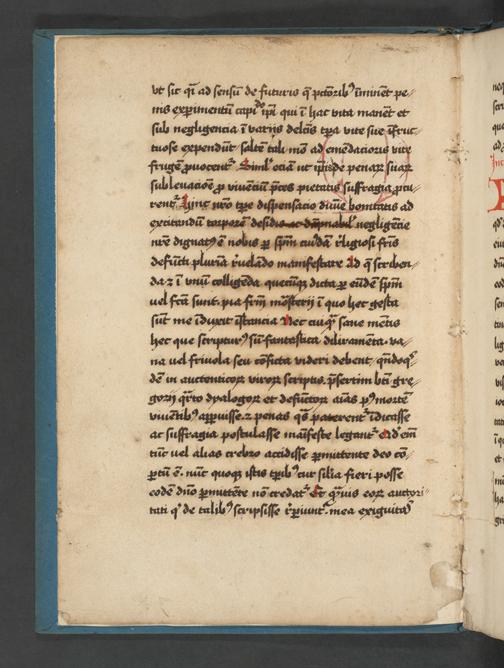 vt sic qi ad sensū de futuris q̄ pctōribꝰ īminēt pe-
nis expimentū capiat̄ ip̄i qui ī hac vita manēt et
sub negligencia ī varijs delc̄is tꝑa vite sue īfruc-
tuose expendūt saltē tali mō ad emēdacioris vite
frugē ꝓuocent᷑ Simil̓ eciā ut ip̄is de penar suar
subleuacōe ꝑ viuenciū p̄ces pietatis suffragia
rent᷑ Hinc nr̄o tꝑe dispensacio diuīe bonitatis ad
excitandū torporē desidis ac dāpnabil̓ negligēcie
nr̄e dignatꝰ ē nobis ꝑ spm̄ cuiꝰdā r̓ligiosi fris
defūcti plurīa r̓uelādo manifestare Ad q̄ scriben-
da ⁊ ī vnū colligēda quecūqꝫ dicta ꝑ eūdē spm̄
vel fc̄a sunt. pia frm̄ mōsterij ī quo hec gesta
sūt me īduxit īstancia Nec cuiqꝫ sane mētis
hec que scriptur sū fantastica diliramēta. va-
na vel friuola seu cōficta videri debent. qn̄doqꝫ
dē in auctenticor viror scriptis. p̄sertim bti gre-
gorij q̄rto dyalogor et defūctor aīas pꝰ mortē
viuētibꝰ apꝑuisse. ⁊ penas qs̄ paterent᷑ īdicasse
ac suffragia postulasse māifeste legant᷑ Et id em̄
tūc vel alias crebro accidisse ꝑmittente deo cō-
ꝑtū ē. nūc quoqꝫ istis tꝑibꝰ cur silia fieri posse
eodē dn̄o ꝑmittēte nō credat᷑ Et q̄ꝫuis eor auctori-
tati qͥ de talibꝰ scripsisse r̓ꝑiunt᷑. mea exiguitas